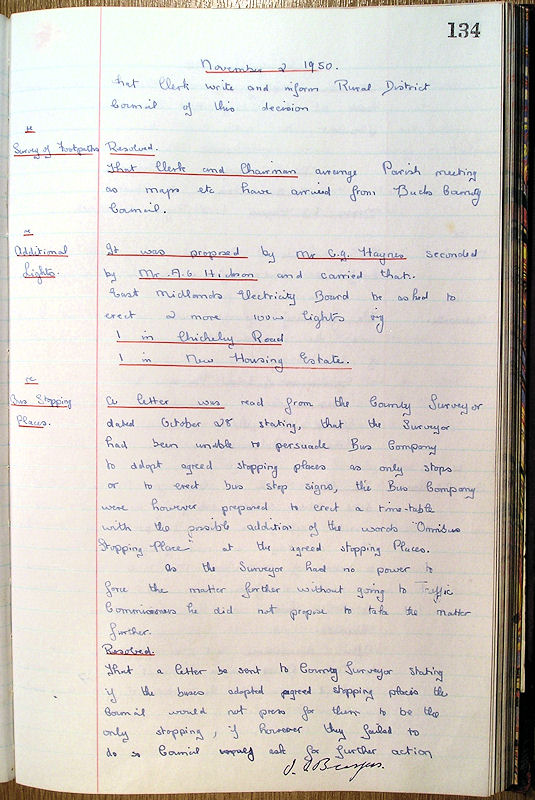 134
November 2 1950.
that Clerk write and inform Rural District
Council of this decision
re
Survey of Footpaths
Resolved.
That Clerk and Chairman arrange Parish meeting
as maps etc have arrived from Bucks County
Council.
re
Additional
Lights.
It was proposed by Mr C.G. Haynes seconded
by Mr A.G. and carried that.
East Midlands Electricity Board be asked to
erect 2 more 100w lights viz
1 in Chicheley Road
1 in New Housing Estate.
re
Bus Stopping
Places.
A letter was read from the County Surveyor
dated October 28 stating, that the Surveyor
had been unable to persuade Bus Company
to adopt agreed stopping places as only stops
or to erect bus stop signs, the Bus Company
were however prepared to erect a time-table
with the possible addition of the words "Omnibus
Stopping Place" at the agreed stopping Places.
As the Surveyor had no power to
force the matter further without going to Traffic
Commissioners he did not propose to take the matter
further.
Resolved.
That a letter be sent to County Surveyor stating
if the buses adopted agreed stopping places the
Council would not press for them to be the
only stopping, if however they failed to
do so Council would ask for further action